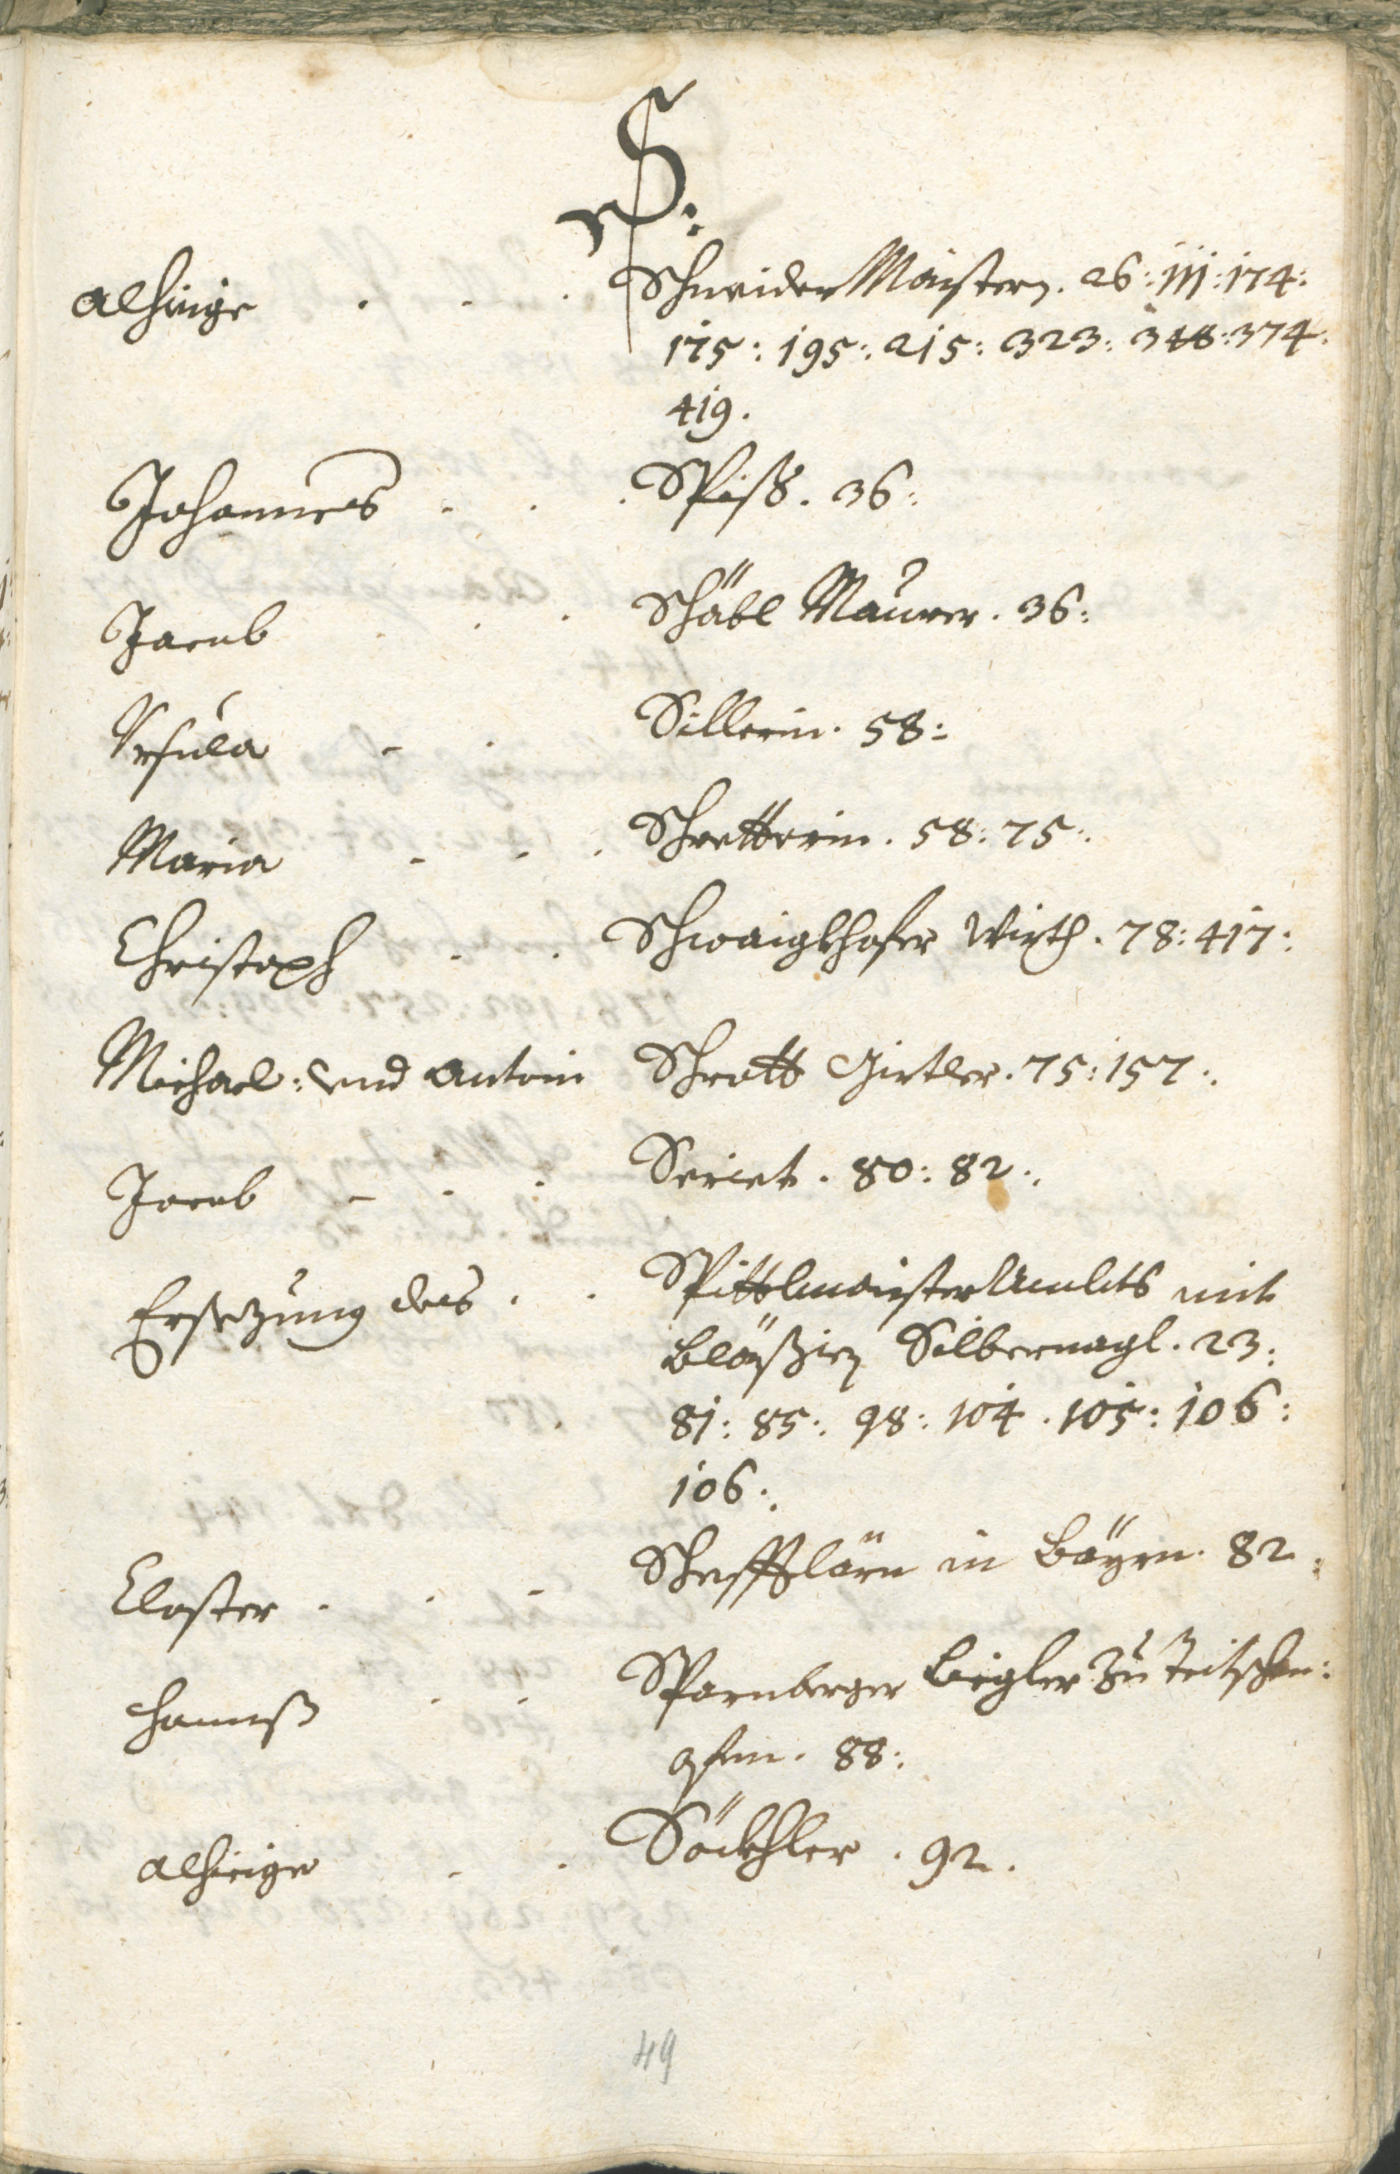 S:
alhirige . . . Schneider Maister. 26: 111: 174:
175: 195: 215: 323: 348: 374.
419.
Johannes . . . Spiss. 36:
Jacob . . . Schäbl Maurer. 36:
Vrsula - . Sillerin. 58:
Maria - - . Schretterin. 58: 75:
Christoph . . Schwaigkhofer Wirth. 78: 417:
Michael: vnd Antoni Schrott Girtler. 75: 157:
Jacob - . . Seriet. 80: 82:
Ersezung des . . Spittlmaister Ambts mit
Bläsien Silbernagl. 23:
81: 85: 98: 104. 105: 106:
106:
Closter . . - Schefftlärn in Bäyrn. 82.
Hannß . . Sparnberger Ziegler zu
88:
alhirige . . Söckhler. 92.
49